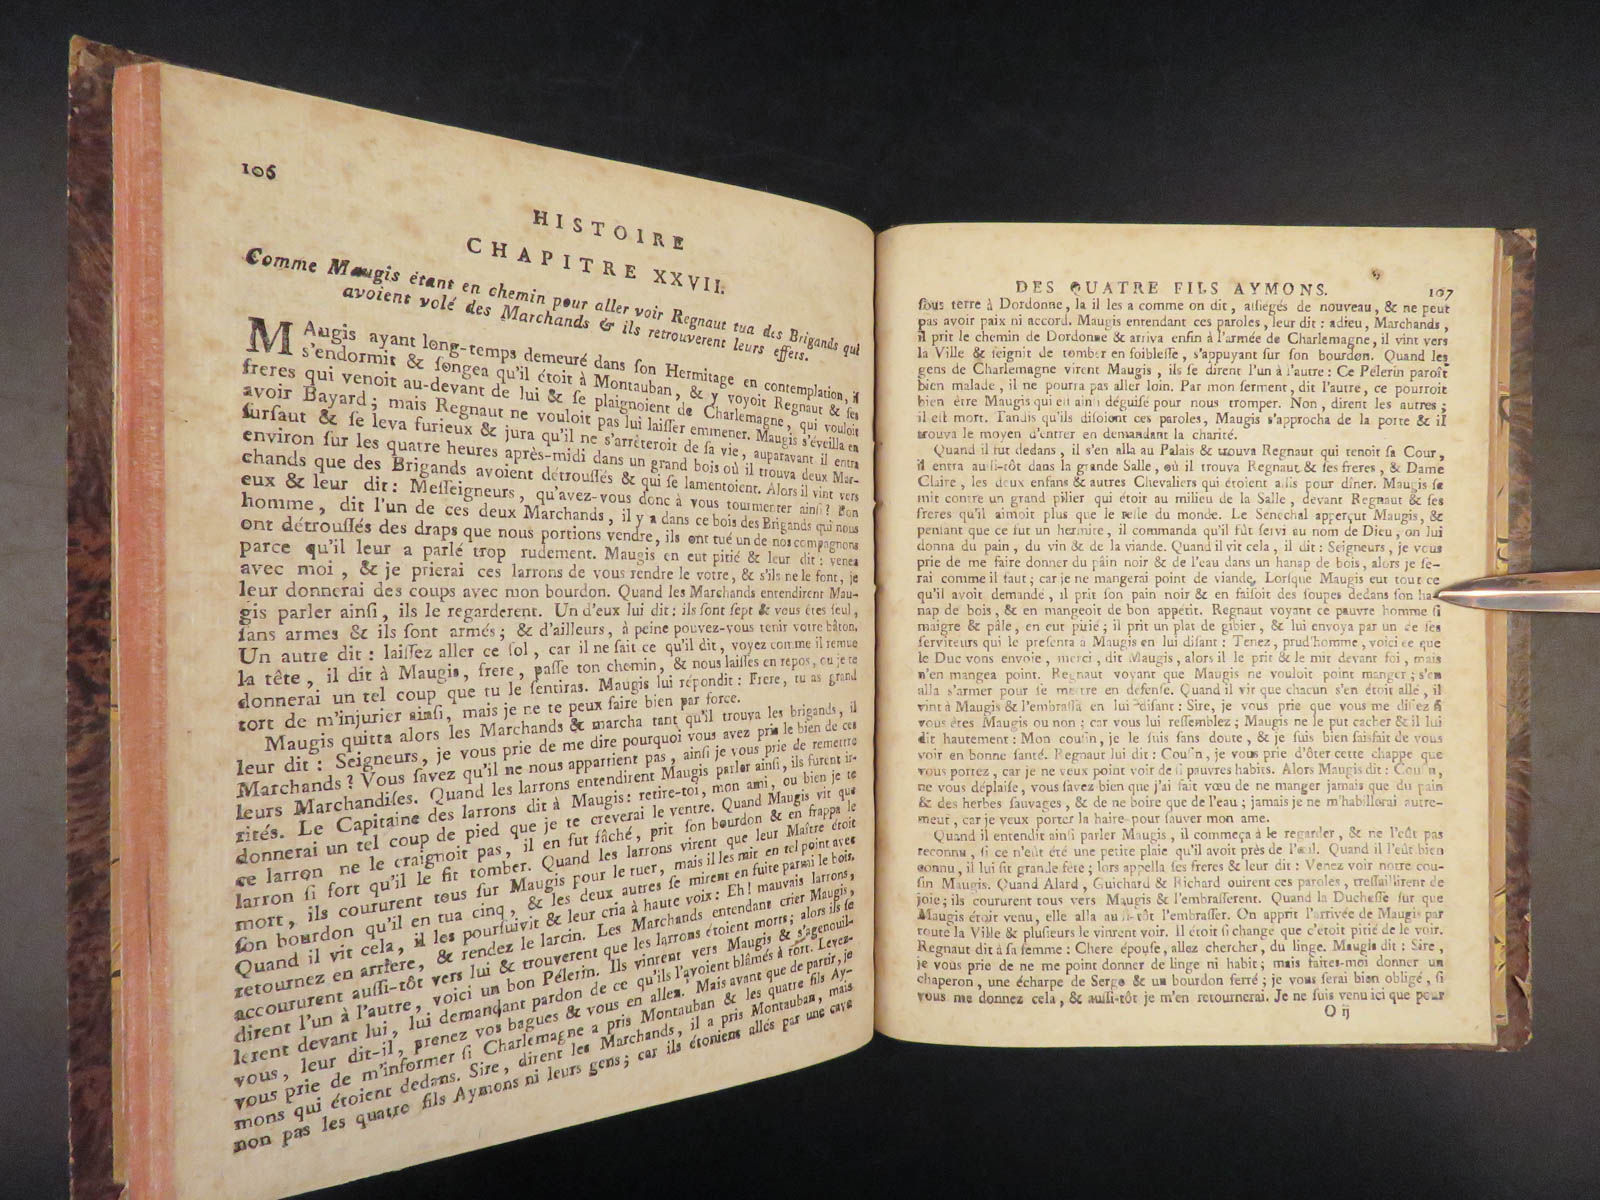 106
HISTOIRE
CHAPITRE XXVII.
Comme Maugis étant en chemin pour aller voir Regnaut tua des Brigands qui
avoient volé des Marchands & ils retrouverent leurs effets.
MAugis ayant long-temps demeuré dans ſon Hermitage en contemplation, il
s'endormit & ſongea qu'il étoit à Montauban, & y voyoit Regnaut & ſes
freres qui venoit au-devant de lui & ſe plaignoient de Charlemagne, qui vouloit
avoir Bayard; mais Regnaut ne vouloit pas lui laiſſer emmener. Maugis s'éveilla en
ſurſaut & ſe leva furieux & jura qu'il ne s'arrêteroit de ſa vie, auparavant il entra
environ ſur les quatre heures après-midi dans un grand bois où il trouva deux Mar-
chands que des Brigands avoient détrouſſés & qui ſe lamentoient. Alors il vint vers
eux & leur dit: Meſſeigneurs, qu'avez-vous donc à vous tourmenter ainſi? Bon
homme, dit l'un de ces deux Marchands, il y a dans ce bois des Brigands qui nous
ont détrouſſés des draps que nous portions vendre, ils ont tué un de nos compagnons
parce qu'il leur a parlé trop rudement. Maugis en eut pitié & leur dit: venez
avec moi, & je prierai ces larrons de vous rendre le votre, & s'ils ne le font, je
leur donnerai des coups avec mon bourdon. Quand les Marchands entendirent Mau-
gis parler ainſi, ils le regarderent. Un d'eux lui dit: ils ſont ſept & vous êtes ſeul,
ſans armes & ils ſont armés; & d'ailleurs, à peine pouvez-vous tenir votre bâton.
Un autre dit: laiſſez aller ce fol, car il ne ſait ce qu'il dit, voyez comme il remue
la tête, il dit à Maugis, frere, paſſe ton chemin, & nous laiſſes en repos, ou je te
donnerai un tel coup que tu le ſentiras. Maugis lui répondit: Frere, tu as grand
tort de m'injurier ainſi, mais je ne te peux faire bien par force.
Maugis quitta alors les Marchands & marcha tant qu'il trouva les brigands, il
leur dit: Seigneurs, je vous prie de me dire pourquoi vous avez pris le bien de ces
Marchands? Vous ſavez qu'il ne nous appartient pas, ainſi je vous prie de remettre
leurs Marchandiſes. Quand les larrons entendirent Maugis parler ainſi, ils furent ir-
rités. Le Capitaine des larrons dit à Maugis: retire-toi, mon ami, ou bien je te
donnerai un tel coup de pied que je te creverai le ventre. Quand Maugis vit que
ce larron ne le craignoit pas, il en fut fâché, prit ſon bourdon & en frappa le
larron ſi fort qu'il le fit tomber. Quand les larrons virent que leur Maître étoit
mort, ils coururent tous ſur Maugis pour le tuer, mais il les mit en tel point avec
ſon bourdon qu'il en tua cinq, & les deux autres ſe mirent en fuite parmi le bois.
Quand il vit cela, il les pourſuivit & leur cria à haute voix: Eh! mauvais larrons,
retournez en arriere, & rendez le larcin. Les Marchands entendant crier Maugis,
accoururent auſſi-tôt vers lui & trouverent que les larrons étoient morts; alors ils ſe
dirent l'un à l'autre, voici un bon Pélerin. Ils vinrent vers Maugis & s'agenouil-
lerent devant lui, lui demandant pardon de ce qu'ils l'avoient blâmés à tort. Levez-
vous, leur dit-il, prenez vos bagues & vous en allez. Mais avant que de partir, je
vous prie de m'informer ſi Charlemagne a pris Montauban & les quatre fils Ay-
mons qui étoient dedans. Sire, dirent les Marchands, il a pris Montauban, mais
non pas les quatre fils Aymons ni leurs gens; car ils étoient allés par une cave
DES QUATRE FILS AYMONS. 107
ſous terre à Dordonne, la il les a comme on dit, aſſiégés de nouveau, & ne peut
pas avoir paix ni accord. Maugis entendant ces paroles, leur dit: adieu, Marchands,
il prit le chemin de Dordonne & arriva enfin à l'armée de Charlemagne, il vint vers
la Ville & feignit de tomber en foibleſſe, s'appuyant ſur ſon bourdon. Quand les
gens de Charlemagne virent Maugis, ils ſe dirent l'un à l'autre: Ce Pélerin paroît
bien malade, il ne pourra pas aller loin. Par mon ſerment, dit l'autre, ce pourroit
bien être Maugis qui eſt ainſi déguiſé pour nous tromper. Non, dirent les autres;
il eſt mort. Tandis qu'ils diſoient ces paroles, Maugis s'approcha de la porte & il
trouva le moyen d'entrer en demandant la charité.
Quand il fut dedans, il s'en alla au Palais & trouva Regnaut qui tenoit ſa Cour,
il entra auſſi-tôt dans la grande Salle, où il trouva Regnaut & ſes freres, & Dame
Claire, les deux enfans & autres Chevaliers qui étoient aſſis pour dîner. Maugis ſe
mit contre un grand pilier qui étoit au milieu de la Salle, devant Regnaut & ſes
freres qu'il aimoit plus que le reſte du monde. Le Sénéchal apperçut Maugis, &
penſant que ce fut un hermite, il commanda qu'il fût ſervi au nom de Dieu, on lui
donna du pain, du vin & de la viande. Quand il vit cela, il dit: Seigneurs, je vous
prie de me faire donner du pain noir & de l'eau dans un hanap de bois, alors je ſe-
rai comme il faut; car je ne mangerai point de viande. Lorſque Maugis eut tout ce
qu'il avoit demandé, il prit ſon pain noir & en faiſoit des ſoupes dedans ſon ha-
nap de bois, & en mangeoit de bon appétit. Regnaut voyant ce pauvre homme ſi
maigre & pâle, en eut pitié; il prit un plat de gibier, & lui envoya par un de ſes
ſerviteurs qui le preſenta à Maugis en lui diſant: Tenez, prud'homme, voici ce que
le Duc vons envoie, merci, dit Maugis, alors il le prit & le mit devant ſoi, mais
n'en mangea point. Regnaut voyant que Maugis ne vouloit point manger; s'en
alla s'armer pour ſe mettre en défenſe. Quand il vir que chacun s'en étoit allé, il
vint à Maugis & l'embraſſa en lui diſant: Sire, je vous prie que vous me diſiez ſi
vous êtes Maugis ou non; car vous lui reſſemblez; Maugis ne le put cacher & il lui
dit hautement: Mon couſin, je le ſuis ſans doute, & je ſuis bien ſaisfait de vous
voir en bonne ſanté. Regnaut lui dit: Couſin, je vous prie d'ôter cette chappe que
vous portez, car je ne veux point voir de ſi pauvres habits. Alors Maugis dit: Couſin,
ne vous déplaiſe, vous ſavez bien que j'ai fait vœu de ne manger jamais que du pain
& des herbes ſauvages, & de ne boire que de l'eau; jamais je ne m'habillerai autre-
ment, car je veux porter la haire pour ſauver mon ame.
Quand il entendit ainſi parler Maugis, il commeça à le regarder, & ne l'eût pas
reconnu, ſi ce n'eût été une petite plaie qu'il avoit près de l'œil. Quand il l'eût bien
connu, il lui fit grande fête; lors appella ſes freres & leur dit: Venez voir notre cou-
ſin Maugis. Quand Alard, Guichard & Richard ouirent ces paroles, treſſaillirent de
joie; ils coururent tous vers Maugis & l'embraſſerent. Quand la Ducheſſe ſut que
Maugis étoit venu, elle alla auſſi-tôt l'embraſſer. On apprit l'arrivée de Maugis par
toute la Ville & pluſieurs le vinrent voir. Il étoit ſi change que c'étoit pitié de le voir.
Regnaut dit à ſa femme: Chere épouſe, allez chercher, du linge. Maugis dit: Sire,
je vous prie de ne me point donner de linge ni habit; mais faites-moi donner un
chaperon, une écharpe de Serge & un bourdon ferré; je vous ſerai bien obligé, ſi
vous me donnez cela, & auſſi-tôt je m'en retournerai. Je ne ſuis venu ici que pour
O ij